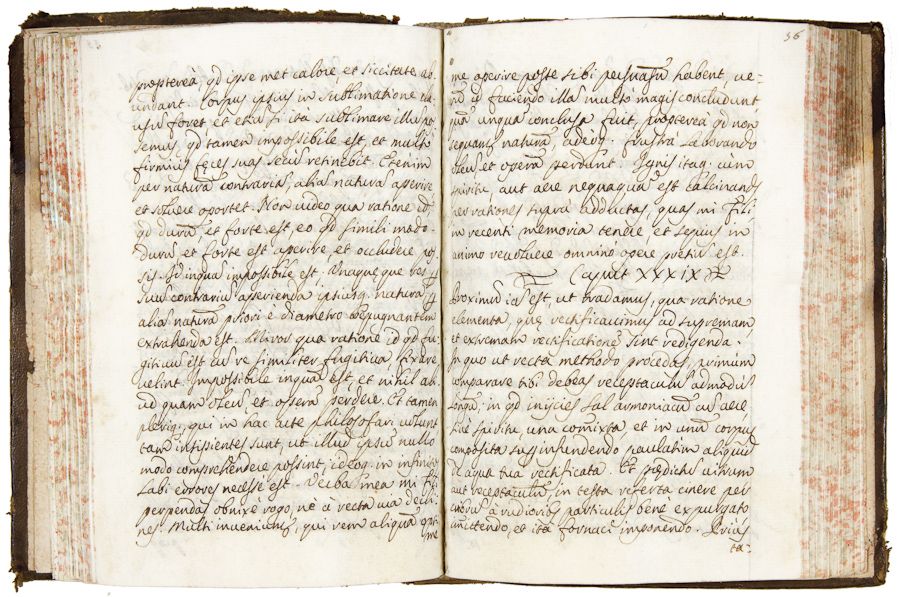 propterea, qd ipse met calore et siccitate ab,
undant. Corpus ipsius in sublimatione
usis foret, et etia si ita sublimare illus
semus, qd tamen impossibile est, et multo
firmius feces suas secu retinebit. Etenim
per natura contraria, alia natura aperire
et soluere oportet. Non uideo qua ratione id,
qd duru, et forte est, eo qd simili modo
duru, et forte est aperire, et occludere pos
sis. Id inqua impossibile est. Unaqueque res
suu contrariu asserienda ipsiusq. natura,
alia natura priori e diametro repugnantem
extrahenda est. Miror qua ratione id qd fu,
gitiuu est cu re similiter fugitiua, fixare
uelint. Impossibile inqua est, et nihil ali,
ud quam oleu, et opera perdere. Et tamen
pleriq; qui in hac arte philosophari uolunt
tam insipientes sunt, ut illud ipsu nullo
modo comprehendere possint, ideoq. in infinitos
labi errores necesse est. Uerba mea mi fili
perpendas obnixe rogo, ne a recta uia decli,
nes. Multi inueniutur, qui rem aliqua opti
me
36
me aperire posse sibi persuasu habent, ue=
ru id faciendo illa multo magis concludunt
qua unqua conclusa fuit, propterea qd non
sequuntur natura, adeoq. frustra laborando
oleu et opera perdunt. Ignis itaq. cum
spiritu, aut aere nequaqua est calcinandus
per rationes supra adductas, quas mi fili
in recenti memoria tenere, et sepius in
animo reuoluere omnino opere pretiu est.
Caput XXXIX
Proximu ia est, ut tradamus, qua ratione
elementa, que rectificauimus ad supremam
et extremam rectificatione sint redigenda.
In quo ut recta methodo procedas, primum
comparare tibi debeas receptaculu admodu
longu, in qd inijcies sal armoniacu cu aere,
siue spiritu, una comixta, et in unu corpus
composita superinfundendo paulatim aliquid
de aqua tua rectificata. Et predictu uitrum
aut receptaculu, in testa referta cinere per
cribru a rudioribus particulis bene expurgato
imittendo, et ita fornaci imponendo. Prius
ta-